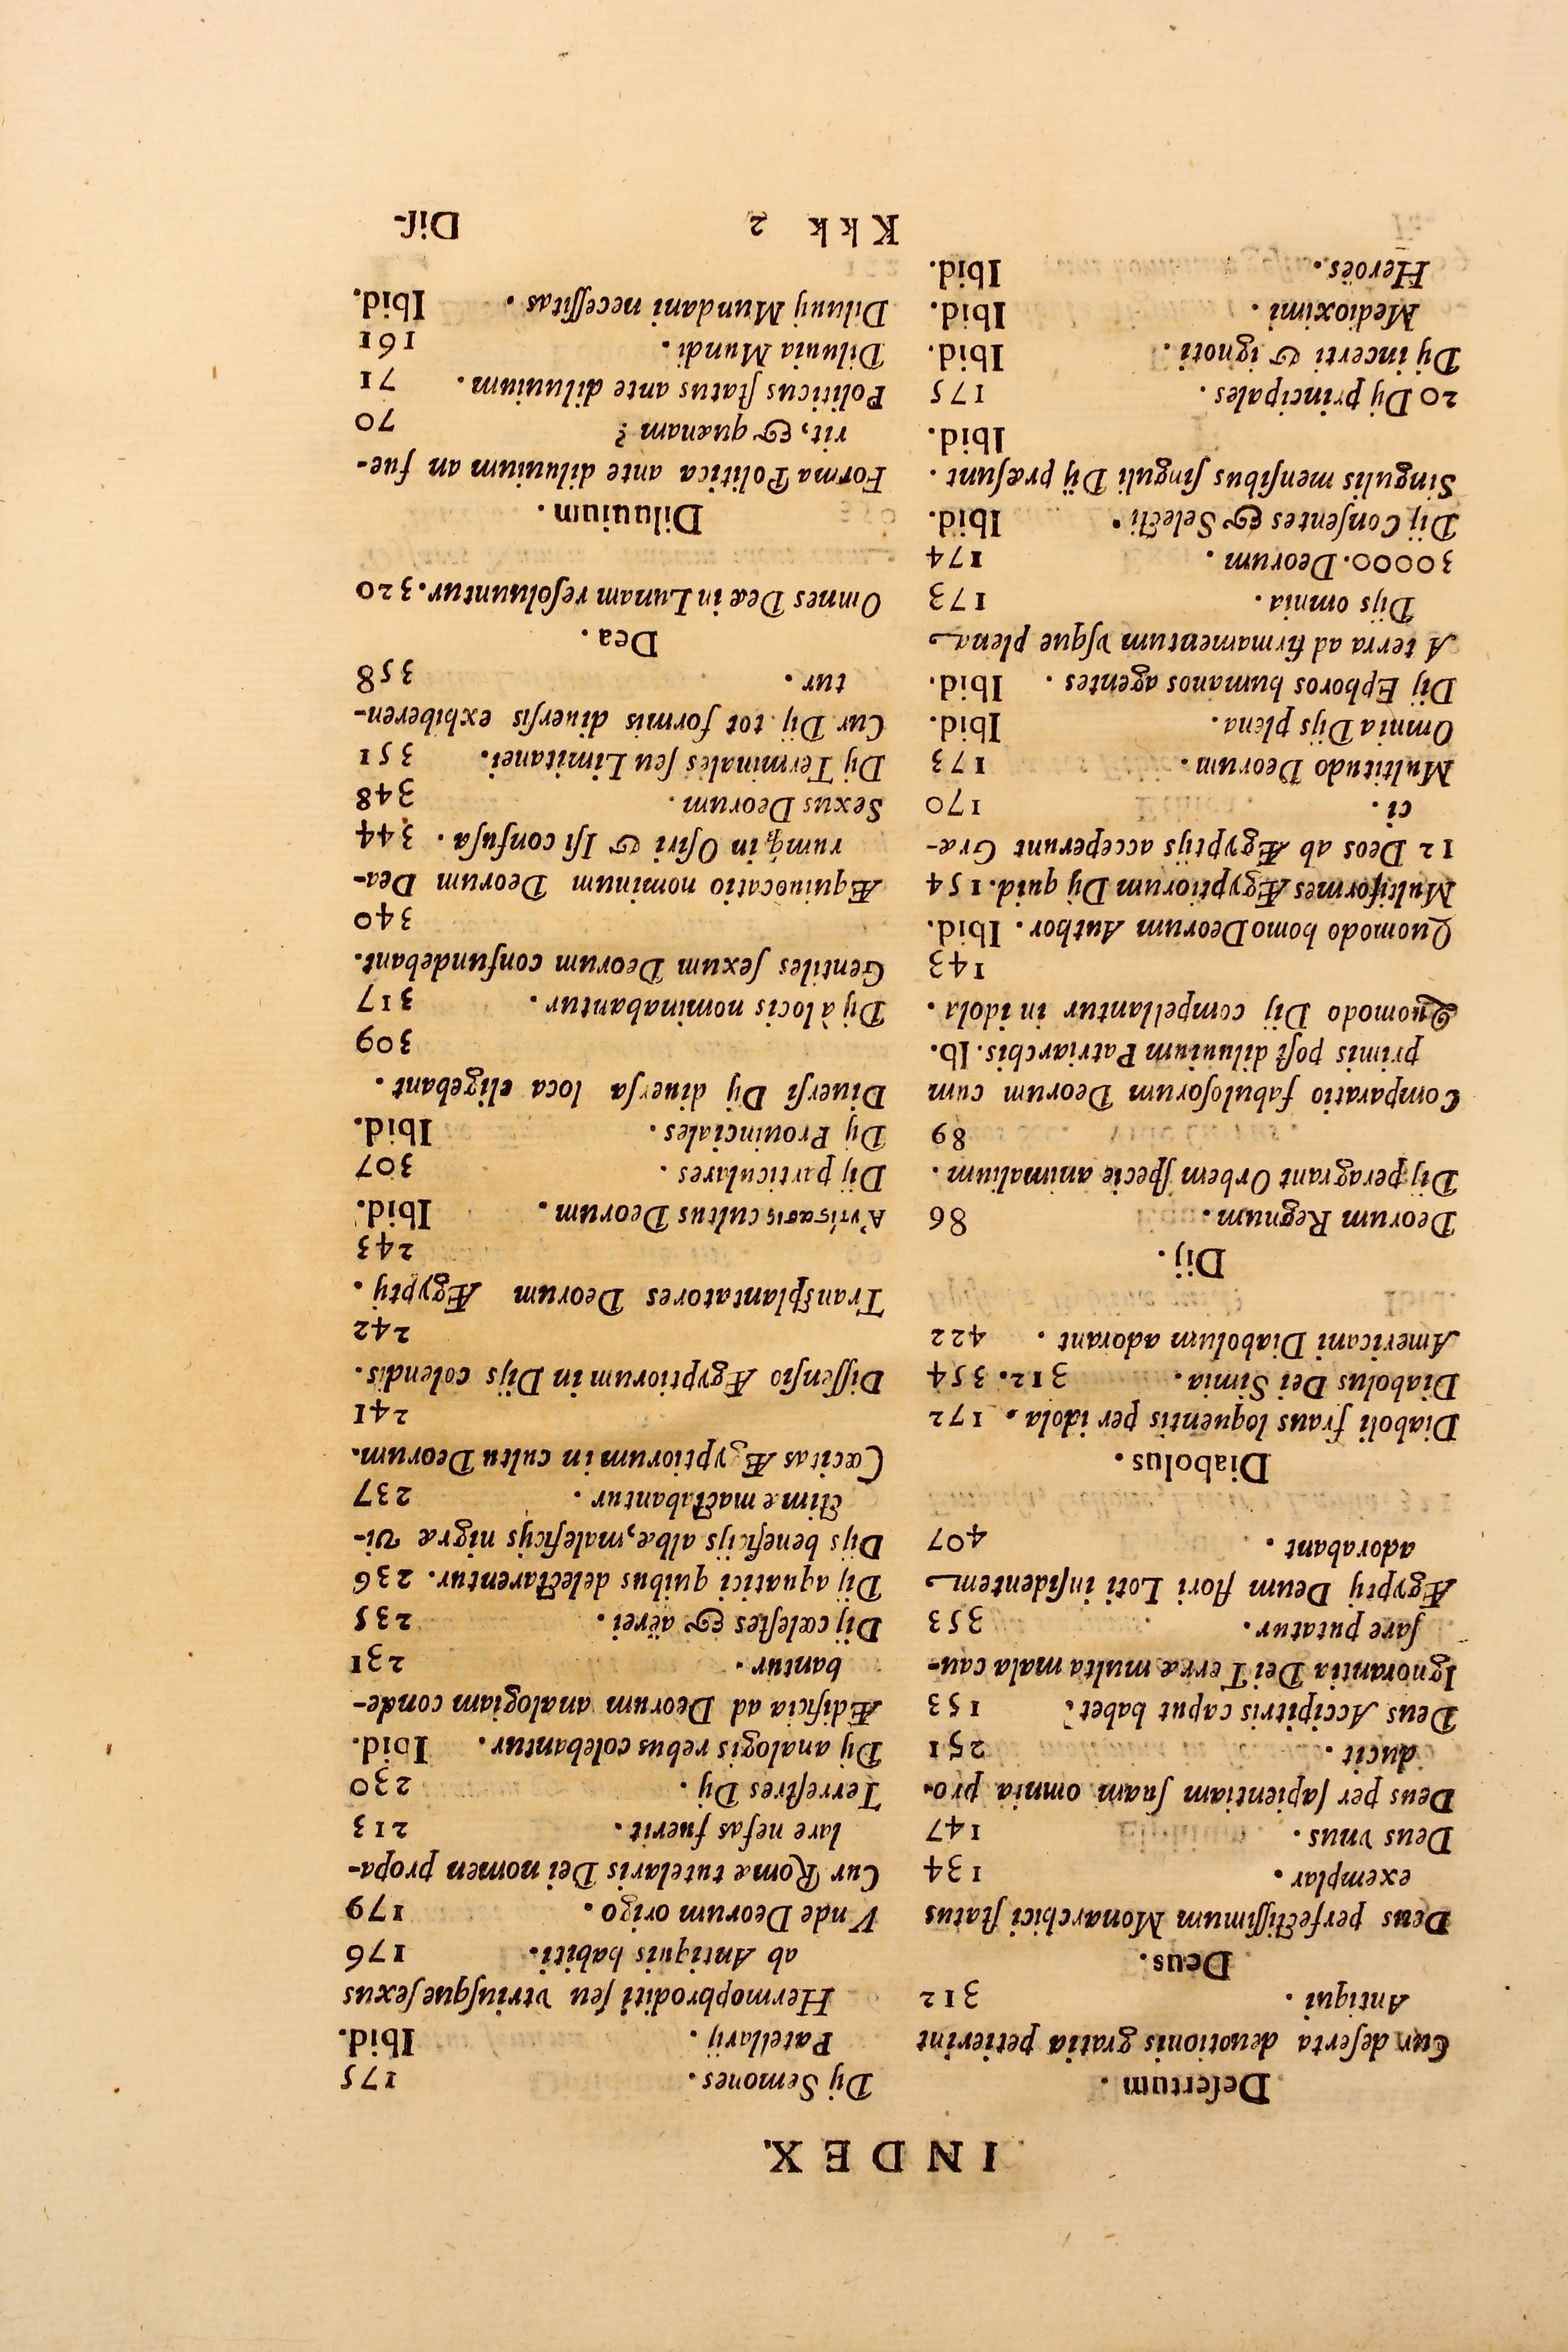 INDEX.
Deſertum.
Cur deſerta deuotionis gratia petierint
Antiqui. 312
Deus.
Deus perfectiſſimum Monarchici ſtatus
exemplar. 134
Deus vnus. 147
Deus per ſapientiam ſuam omnia pro-
ducit. 251
Deus Accipitris caput habet. 153
Ignorantia Dei Terræ multa mala cau-
ſare putatur. 353
Ægyptij Deum flori Loti inſidentem
adorabant. 407
Diabolus.
Diaboli fraus loquentis per idola. 172
Diabolus Dei Simia. 312. 354
Americani Diabolum adorant. 422
Dij.
Deorum Regnum. 86
Dij peragrant Orbem ſpecie animalium.
89
Comparatio fabuloſorum Deorum cum
primis poſt diluuium Patriarchis. Ib.
Quomodo Dij compellantur in idola.
143
Quomodo homo Deorum Author. Ibid.
Multiformes Ægyptiorum Dij quid. 154
12 Deos ab Ægyptijs acceperunt Græ-
ci. 170
Multitudo Deorum. 173
Omnia Dijs plena. Ibid.
Dij Ephoros humanos agentes. Ibid.
A terra ad firmamentum vſque plena
Dijs omnia. 173
30000. Deorum. 174
Dij Conſentes & Selecti. Ibid.
Singulis menſibus ſinguli Dij præſunt.
Ibid.
20 Dij principales. 175
Dij incerti & ignoti. Ibid.
Medioximi. Ibid.
Heroës. Ibid.
Dij Semones. 175
Patellarij. Ibid.
Hermophroditi ſeu vtriuſque ſexus
ab Antiquis habiti. 176
Vnde Deorum origo. 179
Cur Romæ tutelaris Dei nomen propa-
lare nefas fuerit. 213
Terreſtres Dij. 230
Dij analogis rebus colebantur. Ibid.
Ædificia ad Deorum analogiam conde-
bantur. 231
Dij cœleſtes & aërei. 235
Dij aquatici quibus delectarentur. 236
Dijs beneficijs albæ, maleficijs nigræ vi-
ctimæ mactabantur. 237
Cæcitas Ægyptiorum in cultu Deorum.
241
Diſſenſio Ægyptiorum in Dijs colendis.
242
Tranſplantatores Deorum Ægyptij.
243
cultus Deorum. Ibid.
Dij particulares. 307
Dij Prouinciales. Ibid.
Diuerſi Dij diuerſa loca eligebant.
309
Dij à locis nominabantur. 317
Gentiles ſexum Deorum confundebant.
340
Æquiuocatio nominum Deorum Dea-
rumq́; in Oſiri & Iſi confuſa. 344
Sexus Deorum. 348
Dij Terminales ſeu Limitanei. 351
Cur Dij tot formis diuerſis exhiberen-
tur. 358
Dea.
Omnes Deæ in Lunam reſoluuntur. 320
Diluuium.
Forma Politica ante diluuium an fue-
rit, & quænam? 70
Politicus ſtatus ante diluuium. 71
Diluuia Mundi. 161
Diluuij Mundani neceſſitas. Ibid.
Kkk 2 Diſ-